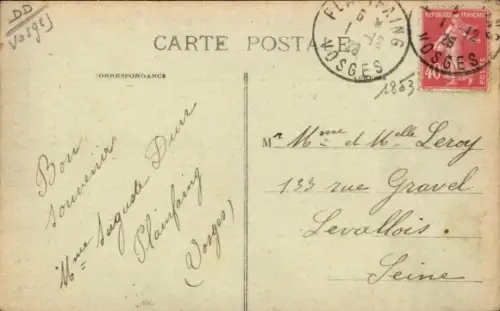 DD
Vosges
CARTE POSTALE
CORRESPONDANCE
PLAINFAING
VOSGES
REPUBLIQUE FRANÇAISE
40
VOSGES
1803
Bon
souvenir
Mme Auguste
Plainfaing
(Vosges)
Mr Mme et Melle Leroy
133 rue Gravel
Levallois
Seine